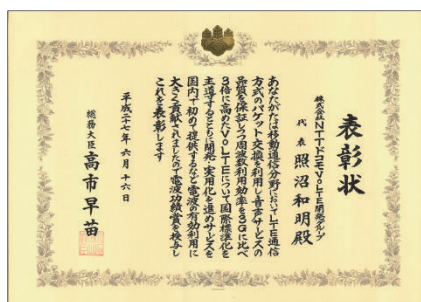 表彰状
株式会社NTTドコモVoLTE開発グループ
代表 照沼和明殿
あなたがたは移動通信分野においてLTE通信
方式のパケット交換を利用し音声サービスの
品質を保証しつつ周波数利用効率を3Gに比べ
3倍に高めたVoLTEについて国際標準化を
主導するとともに開発・実用化を進めサービスを
国内で初めて提供するなど電波の有効利用に
大きく貢献されましたので電波功績賞を授与し
これを表彰します
平成二十七年六月十六日
総務大臣 高市早苗